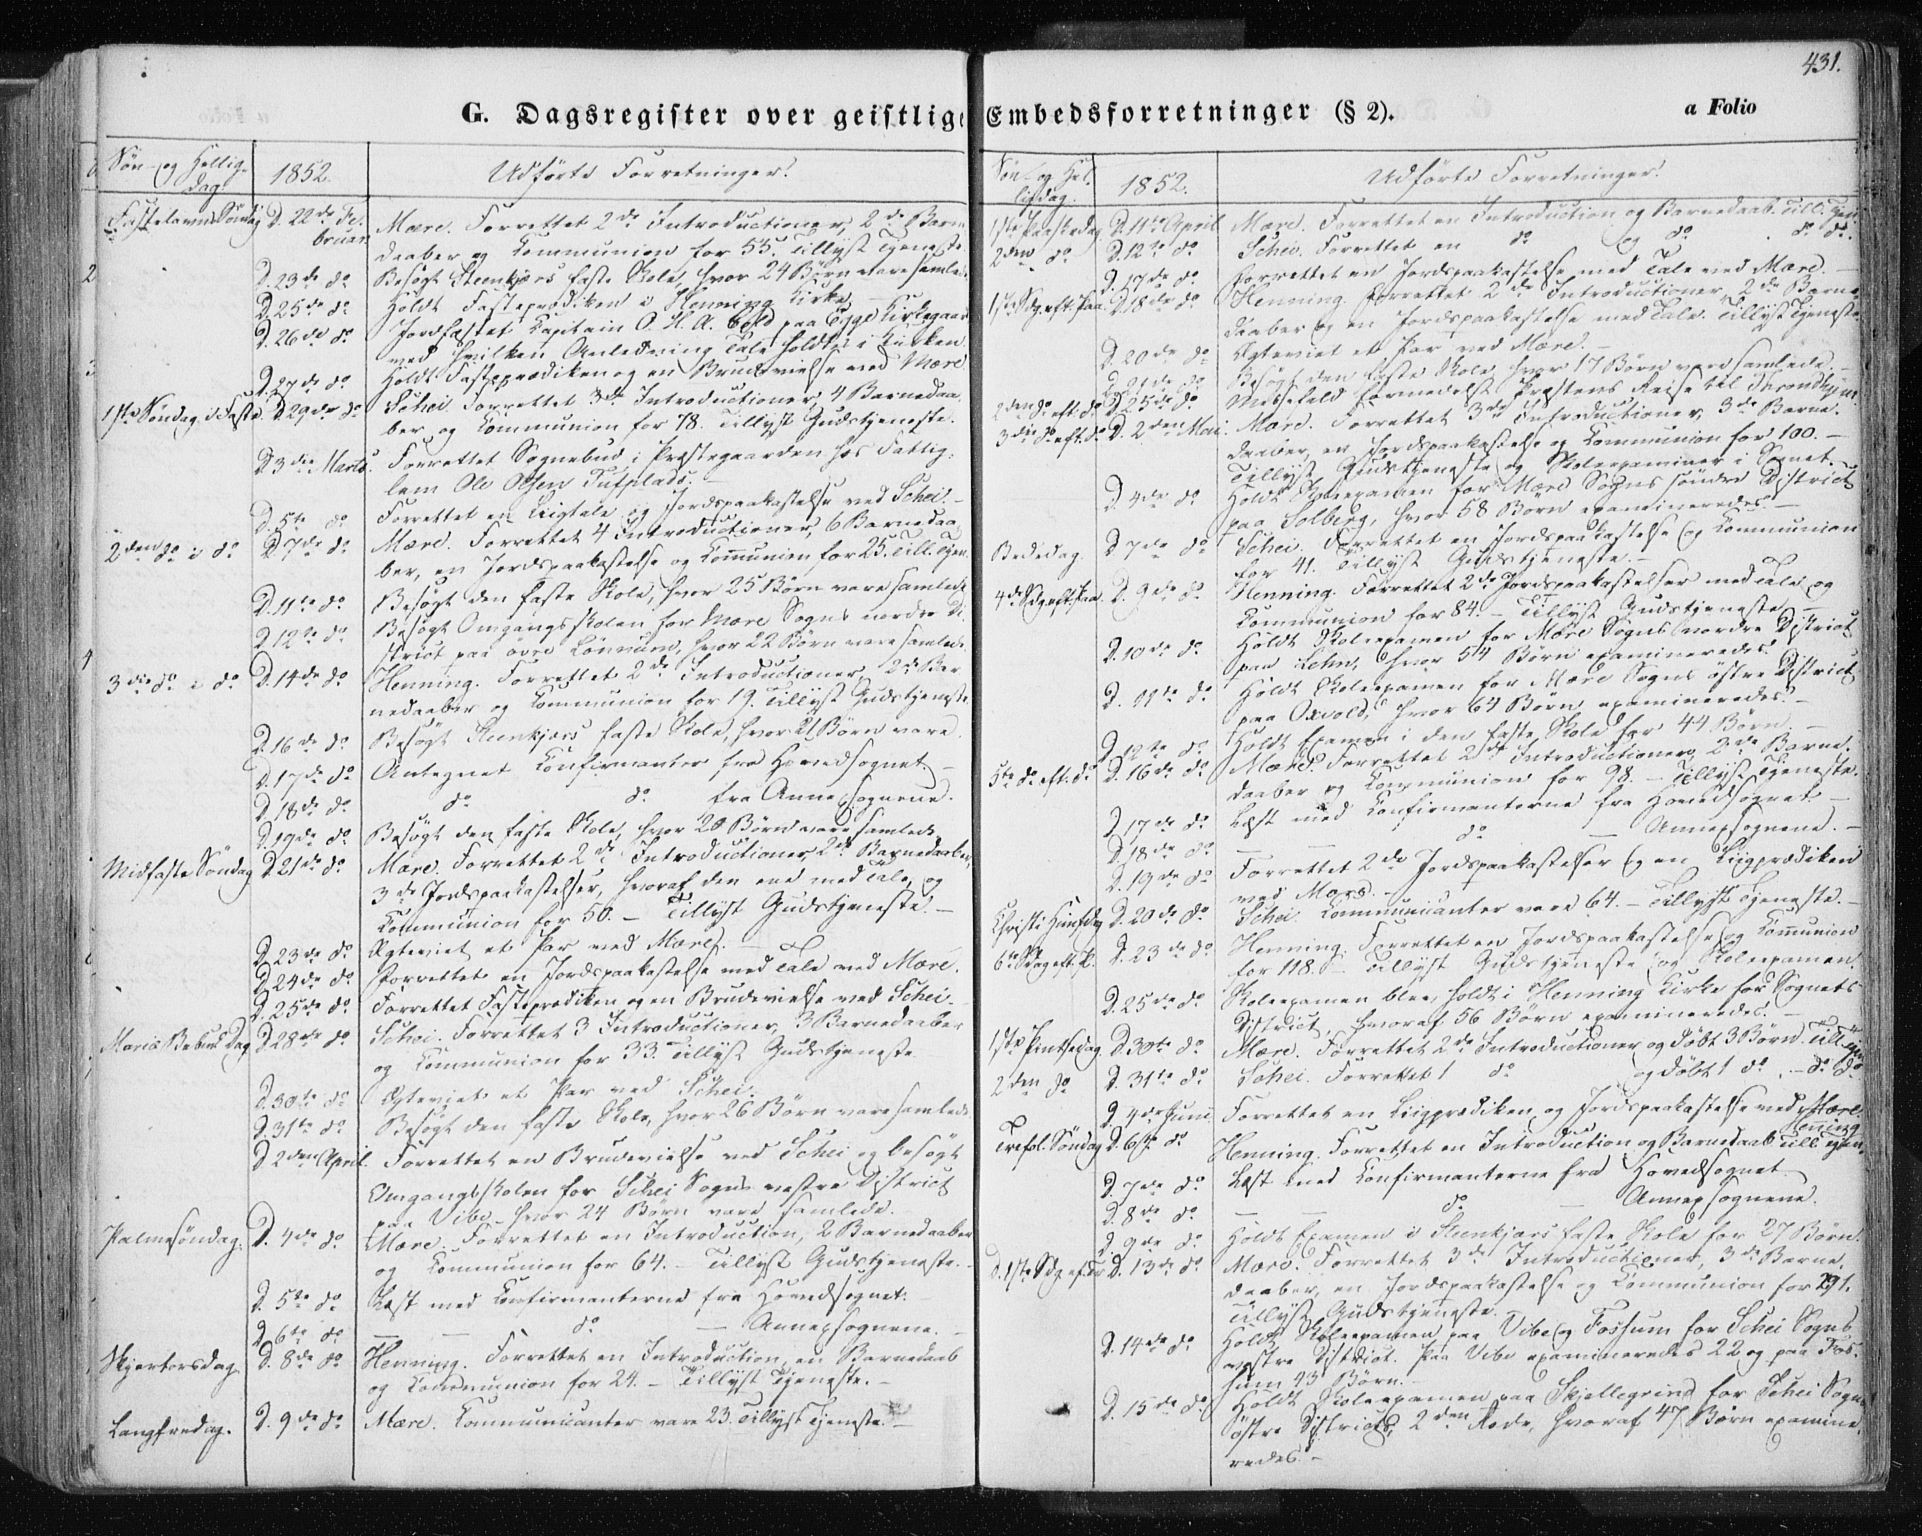 431.
G. Dagsregister over geistlige Embedsforretninger (§ 2).
a Folio
Søn- og Hellig-
dag.
1852.
Udførte Forretninger.
Fastelavns Søndag D. 22de Fe-
bruar. Mære. Forrettet 2de Introductioner, 2de Barne-
daaber og Communion for 55. Tillyst Tjeneste.
D. 23de do Besøgt Steenkjærs faste Skole, hvor 24 Børn vare samlede.
D. 25de do Holdt Fasteprædiken i Henning Kirke.
D. 26de do Jordfæstet Capitain O. H. A. paa Egge Kirkegaard
ved hvilken Anledning Tale holdtes i Kirken.
D. 27de do Holdt Fasteprædiken og en Brudevielse ved Mære.
1ste Søndag i Faste D. 29de do Schei. Forrettet 3de Introductioner, 4 Barnedaa-
ber og Communion for 78. Tillyst Gudstjeneste.
D. 3die Marts. Forrettet Sognebud i Præstegaarden hos Fattig-
lem Ole Olsen Tufplads.
D. 5te do Forrettet en Liigtale og Jordspaakastelse ved Schei.
2den do i do D. 7de do Mære. Forrettet 4 Introductioner, 6 Barnedaa-
ber, en Jordspaakastelse og Communion for 25. Till. Tjen.
D. 11te do Besøgt den faste Skole, hvor 25 Børn vare samlede.
D. 12te do Besøgt Omgangsskolen for Mære Sogns nordre Di-
strict paa øvre Lønnum, hvor 22 Børn vare samlede.
3die do i do D. 14de do Henning. Forrettet 2de Introductioner, 2de Bar-
nedaaber og Communion for 19. Tillyst Gudstjeneste.
D. 16de do Besøgt Steenkjærs faste Skole, hvor 21 Børn vare.
D. 17de do Antegnet Confirmanter fra Hovedsognet. –
D. 18de do do do fra Annexsognene.
D. 19de do Besøgt den faste Skole, hvor 20 Børn vare samlede.
Midfaste Søndag D. 21de do Mære. Forrettet 2de Introductioner, 2de Barnedaaber,
3de Jordspaakastelser, hvoraf den ene med Tale, og
Communion for 50. – Tillyst Gudstjeneste. –
D. 23de do Ægteviet et Par ved Mære.
D. 24de do Forrettet en Jordspaakastelse med Tale ved Mære.
D. 25de do Forrettet Fasteprædiken og en Brudevielse ved Schei.
Mariæ Beb. Dag D. 28de do Schei. Forrettet 3 Introductioner, 3 Barnedaaber
og Communion for 33. Tillyst Gudstjeneste.
D. 30te do Ægteviet et Par ved Schei.
D. 31te do Besøgt den faste Skole, hvor 26 Børn vare samlede.
D. 2den April. Forrettet en Brudevielse ved Schei og besøgt
Omgangsskolen for Schei Sogns vestre District
paa Vibe, hvor 24 Børn vare samlede.
Palmesøndag. D. 4de do Mære. Forrettet en Introduction, 2 Barnedaaber
og Communion for 64. – Tillyst Gudstjeneste. –
D. 5te do Læst med Confirmanterne fra Hovedsognet.
D. 6te do – – do – Annexsognene. –
Skjertorsdag. D. 8de do Henning. Forrettet en Introduction, en Barnedaab
og Communion for 24. – Tillyst Tjeneste. –
Langfredag. D. 9de do Mære. Communicanter vare 23. Tillyst Tjeneste. –
Søn- og Hel-
ligdag.
1852.
Udførte Forretninger.
1ste Paaskedag D. 11te April Mære. Forrettet en Introduction og Barnedaab. Till. Tjen.
2den do D. 12te do Schei. Forrettet en do og do. do do.
D. 17de do Forrettet en Jordspaakastelse med Tale ved Mære. –
1ste Sdg. eft. Paa. D. 18de do Henning. Forrettet 2de Introductioner, 2de Barne-
daaber og en Jordspaakastelse med Tale. Tillyst Tjeneste.
D. 20de do Ægteviet et Par ved Mære. –
D. 21de do Besøgt den faste Skole, hvor 17 Børn vare samlede. –
2den do eft. do D. 25de do Messefald formedelst Præstens Reise til Throndhjem.
3die do eft. do D. 2den Mai. Mære. Forrettet 3de Introductioner, 3de Barne-
daaber, en Jordspaakastelse og Communion for 100. –
Tillyst Gudstjeneste og Skoleexaminer i Sognet. –
D. 4de do Holdt Skoleexamen for Mære Sogns søndre District
paa Solberg, hvor 58 Børn examineredes. –
Bededag. D. 7de do Schei. Forrettet en Jordspaakastelse og Communion
for 41. Tillyst Gudstjeneste. –
4de Sdg. eft. Paa. D. 9de do Henning. Forrettet 2de Jordspaakastelser med Tale og
Communion for 84. – Tillyst Gudstjeneste –
D. 10de do Holdt Skoleexamen for Mære Sogns nordre District
paa Lehn, hvor 54 Børn examineredes.
D. 11te do Holdt Skoleexamen for Mære Sogns østre District
paa Oxvold, hvor 64 Børn examineredes. –
D. 12te do Holdt Examen i den faste Skole for 44 Børn. –
5te do eft. do D. 16de do Mære. Forrettet 2de Introductioner, 2de Barne-
daaber og Communion for 98. – Tillyst Tjeneste.
D. 17de do Læst med Confirmanterne fra Hovedsognet –
D. 18de do – – do – Annexsognene. –
D. 19de do Forrettet 2de Jordspaakastelser og en Liigprædiken
ved Mære. –
Christi Himfdg. D. 20de do Schei. Communicanter vare 64. – Tillyst Tjeneste. –
6te Sdg. eft. P. D. 23de do Henning. Forrettet en Jordspaakastelse og Communion
for 118. – Tillyst Gudstjeneste og Skoleexamen.
D. 25de do Skoleexamen blev holdt i Henning Kirke for Sognets
District, hvoraf 56 Børn examineredes. –
1ste Pintsedag. D. 30te do Mære. Forrettet 2de Introductioner og døbt 3 Børn. Till. Tjen.
2den do D. 31te do Schei. Forrettet 1 do og døbt 1 do. – do do
D. 4de Juni Forrettet en Liigprædiken og Jordspaakastelse ved Mære.
Henning
Trefol. Søndag D. 6te do Henning. Forrettet en Introduction og Barnedaab. Till. Tjen.
D. 7de do Læst med Confirmanterne fra Hovedsognet.
D. 8de do – – do – Annexsognene.
D. 9de do Holdt Examen i Steenkjærs faste Skole for 27 Børn.
D. 1ste Sdg. ef. Tr. D. 13de do Mære. Forrettet 3de Introductioner, 3de Barne-
daaber, en Jordspaakastelse og Communion for 191.
Tillyst Gudstjeneste.
D. 14de do Holdt Skoleexamen paa Vibe og Fossum for Schei Sogns
vestre District. Paa Vibe examineredes 22 og paa Fos-
sum 43 Børn. –
D. 15de do Holdt Skoleexamen paa Skjellegrind for Schei Sogns
østre District, 2den Rode, hvoraf 47 Børn examine-
redes. –